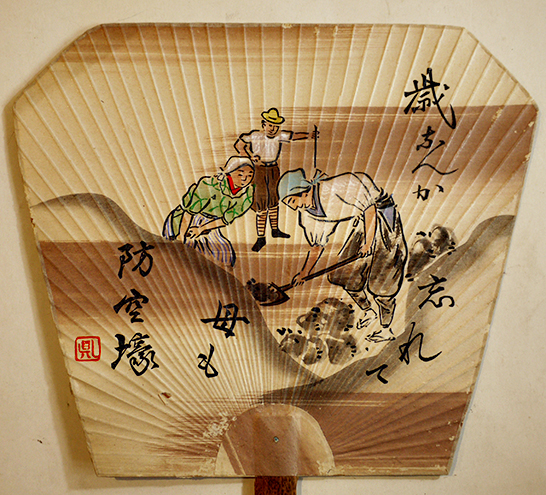 歳なんか
忘れて
母も
防空壕